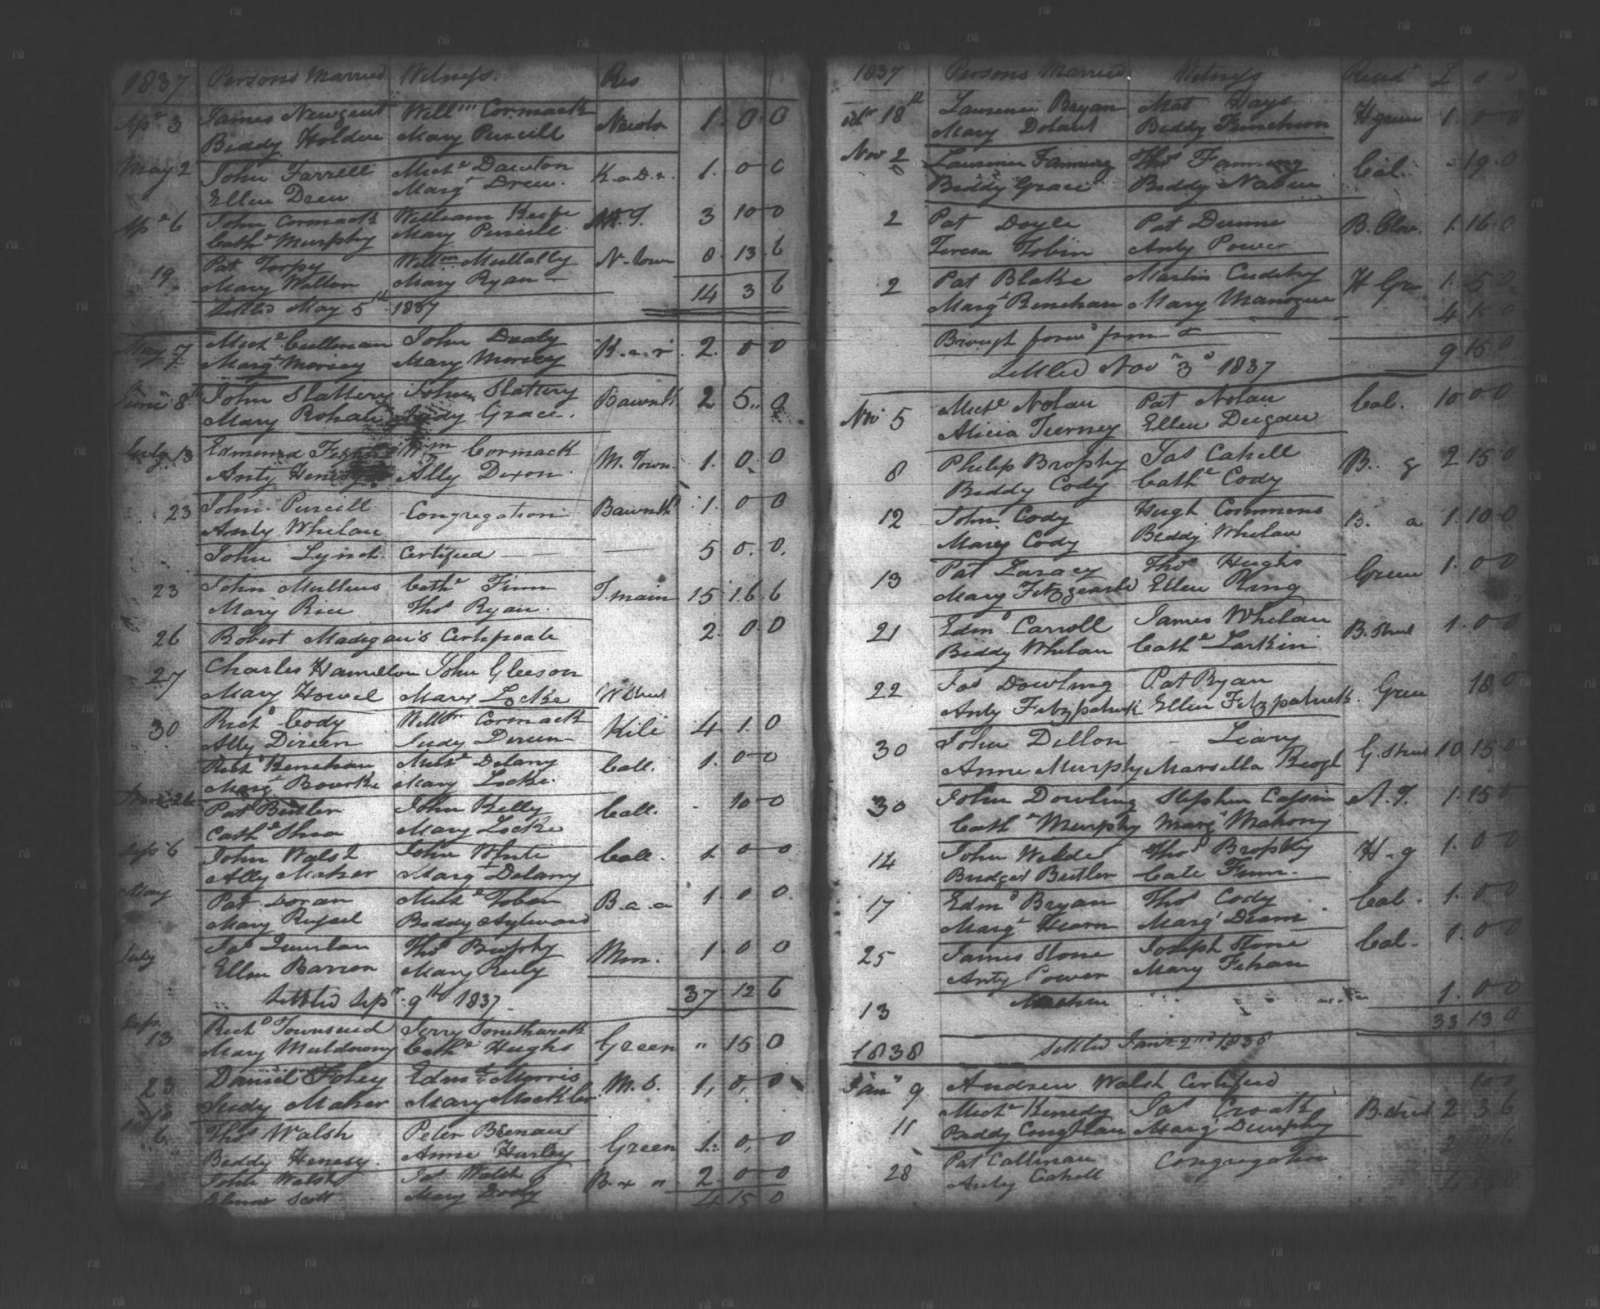 1837 Persons Married Witness. Res
Apl 3 James Newgent Willm Cormack
Biddy Holden Mary Purcill 1. 0. 0
May 2 John Farrell Michl Dawton
Ellen Drew Margt Drew. 1. 0 0
Apl 6 John Cormack William Keefe
Cathe Murphy Mary Purcill 3 10 0
19 Pat Torpy Willm Mullally N-town 0. 13. 6
Mary Walton Mary Ryan
Settled May 5th 1837 14 3 6
May 7 Michl Cullinan John Dealy
Margt Morsey Mary Morsey 2. 0 0
June 8th John Slattery John Slattery
Mary Rohan Judy Grace. 2 5 0
July 13 Edmund Wm Cormack
Anty Ally Dixon. M. Town 1. 0. 0
23 John Purcill Congregation 1. 0 0
Anty Whelan
John Lynch Certified 5 0. 0.
23 John Mullins Cathe Finn
Mary Rice Thos Ryan. 15 16 6
26 Robert Madigan's Certificate 2. 0. 0
27 Charles Hamilton John Gleeson
Mary Howel Mary Locke
30 Richd Cody Willm Cormack
Ally Direen Judy Direen Kile 4 1. 0
Richd Kenehan Michl Delany
Margt Bourke Mary Locke. Call. 1. 0 0
Pat Butler John Kelly
Cathe Shea Mary Locke Call. 10 0
Sep 6 John Walsh John White
Ally Maher Margt Delany Call. 1 0 0
May Pat Doran Michl Tobin
Mary Biddy Aylward 1 0 0
July Jas Quinlan Thos Brophy
Ellen Barron Mary Mon. 1. 0 0
Settled Sepr 9th 1837 37 12 6
13 Richd Townsend Jerry
Mary Muldowny Cathe Hughs Green " 15 0
23 Daniel Fohey Edmd Morris
Judy Maher Mary 1, 0, 0
6 Thos Walsh Peter
Biddy Henesy. Anne Hurley Green 1. 0, 0
John Walsh Jas Walsh
Scott Mary 2. 0 0
4 15 0
1837 Persons Married Witness £
18th Laurence Bryan Mat Hays
Mary Biddy H green 1. 0 0
Nov 2 Laurence Fanning Thos Fanning
Biddy Grace Biddy Cal. - 19. 0
2 Pat Doyle Pat Dunne
Teresa Tobin Anty Power 1. 16. 0
2 Pat Blake Martin Cuddihy
Margt Renehan Mary Manogue 1. 5 0
4 15 0
Brough forwd from 9 15 0
Settled Novr 3d 1837
Nov 5 Michl Nolan Pat Nolan
Alicia Tierney Ellen Duggan Cal. 10 0 0
8 Philip Brophy Jas Cahell
Biddy Cody Cathe Cody 2 15 0
12 John Cody Hugh Commons
Mary Cody Biddy Whelan 1. 10 0
13 Pat Laracy Thos Hughs
Mary Fitzgearld Ellen Ring Green 1. 0 0
21 Edmd Carroll James Whelan
Biddy Whelan Cathe Larkin 1. 0 0
22 Jas Dowling Pat Ryan
Anty Fitzpatrick Ellen Fitzpatrick. Green 18 0
30 John Dillon - Leary
Anne Murphy Marsella Keogh 10 15 0
30 John Dowling Stephen Cassin
Cathe Murphy Margt Mahony 1. 15 0
14 John Welde Thos Brophy
Bridget Butler Cate Finn. H. g 1. 0 0
17 Edmd Bryan Thos Cody
Margt Hearn Margt Cal. 1. 0 0
25 James Stone Joseph Stone
Anty Power Mary Fehan Cal. 1. 0 0
13 1. 0 0
33 13 0
1838 Settled Jany 2nd 1838
Jany 9 Andrew Walsh Certified
11 Michl Kenedy Jas Croak
Biddy Coughlan Margt Dunphy 2 3 6
28 Pat Callinan Congregation
Anty Cahell